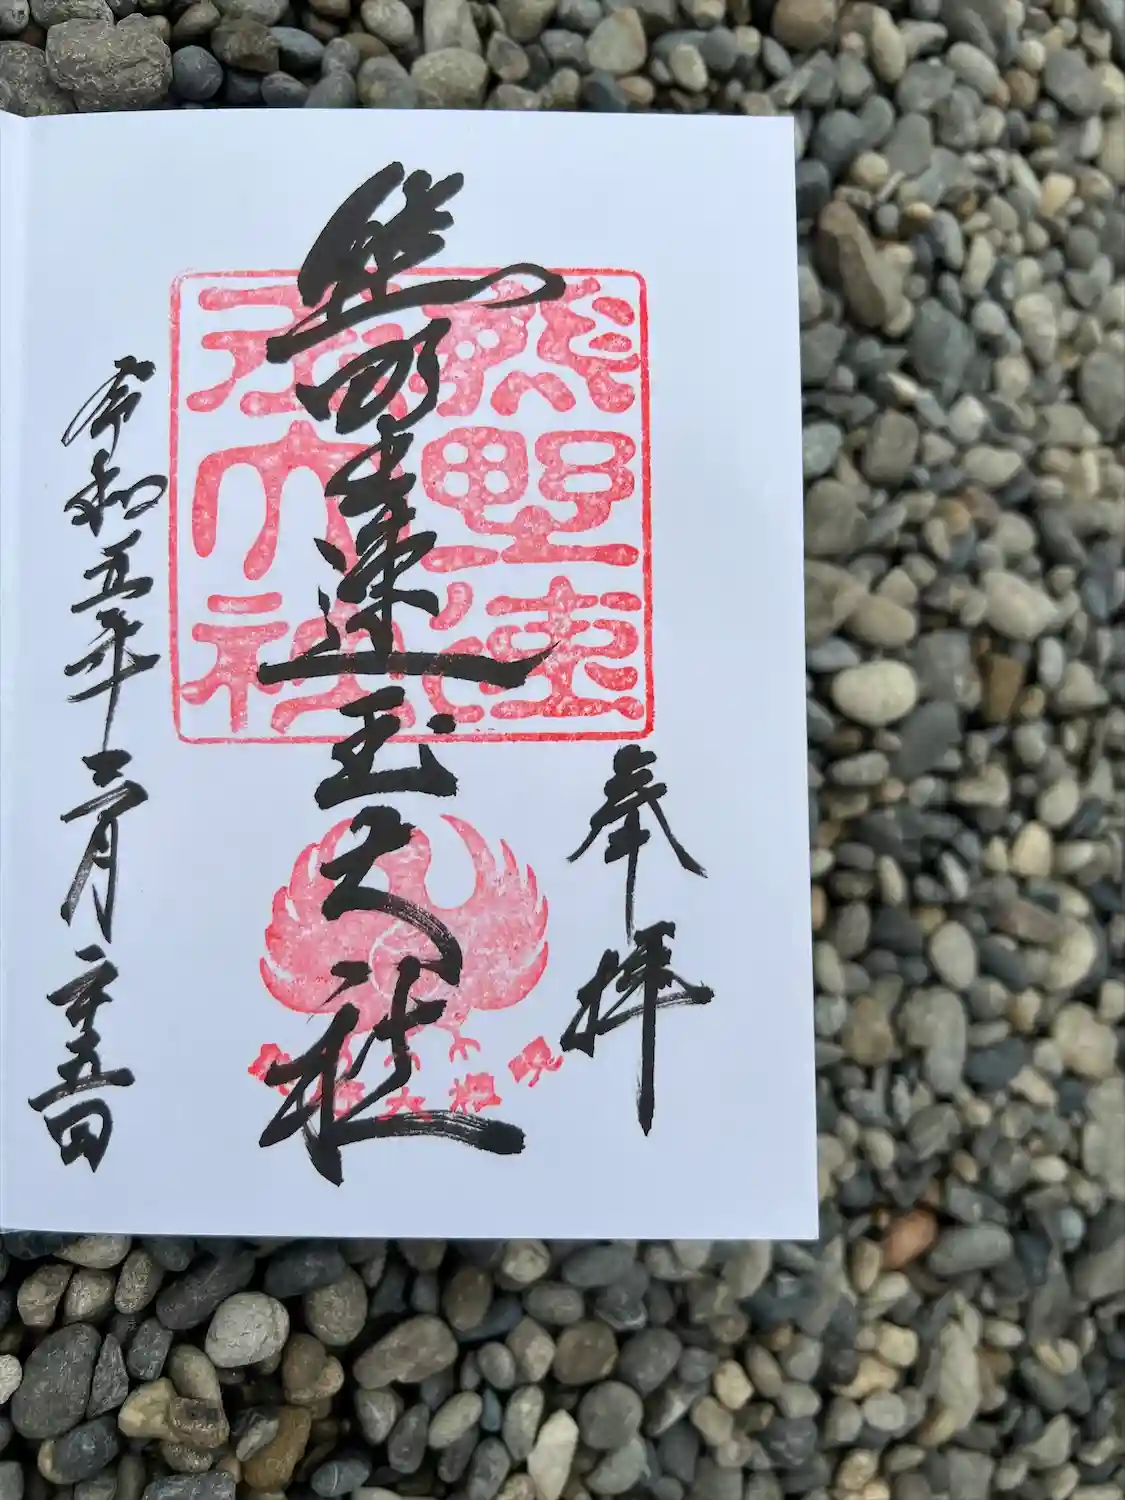 奉拝
熊野速玉大社
令和五年三月二十五日
熊野速
玉大社